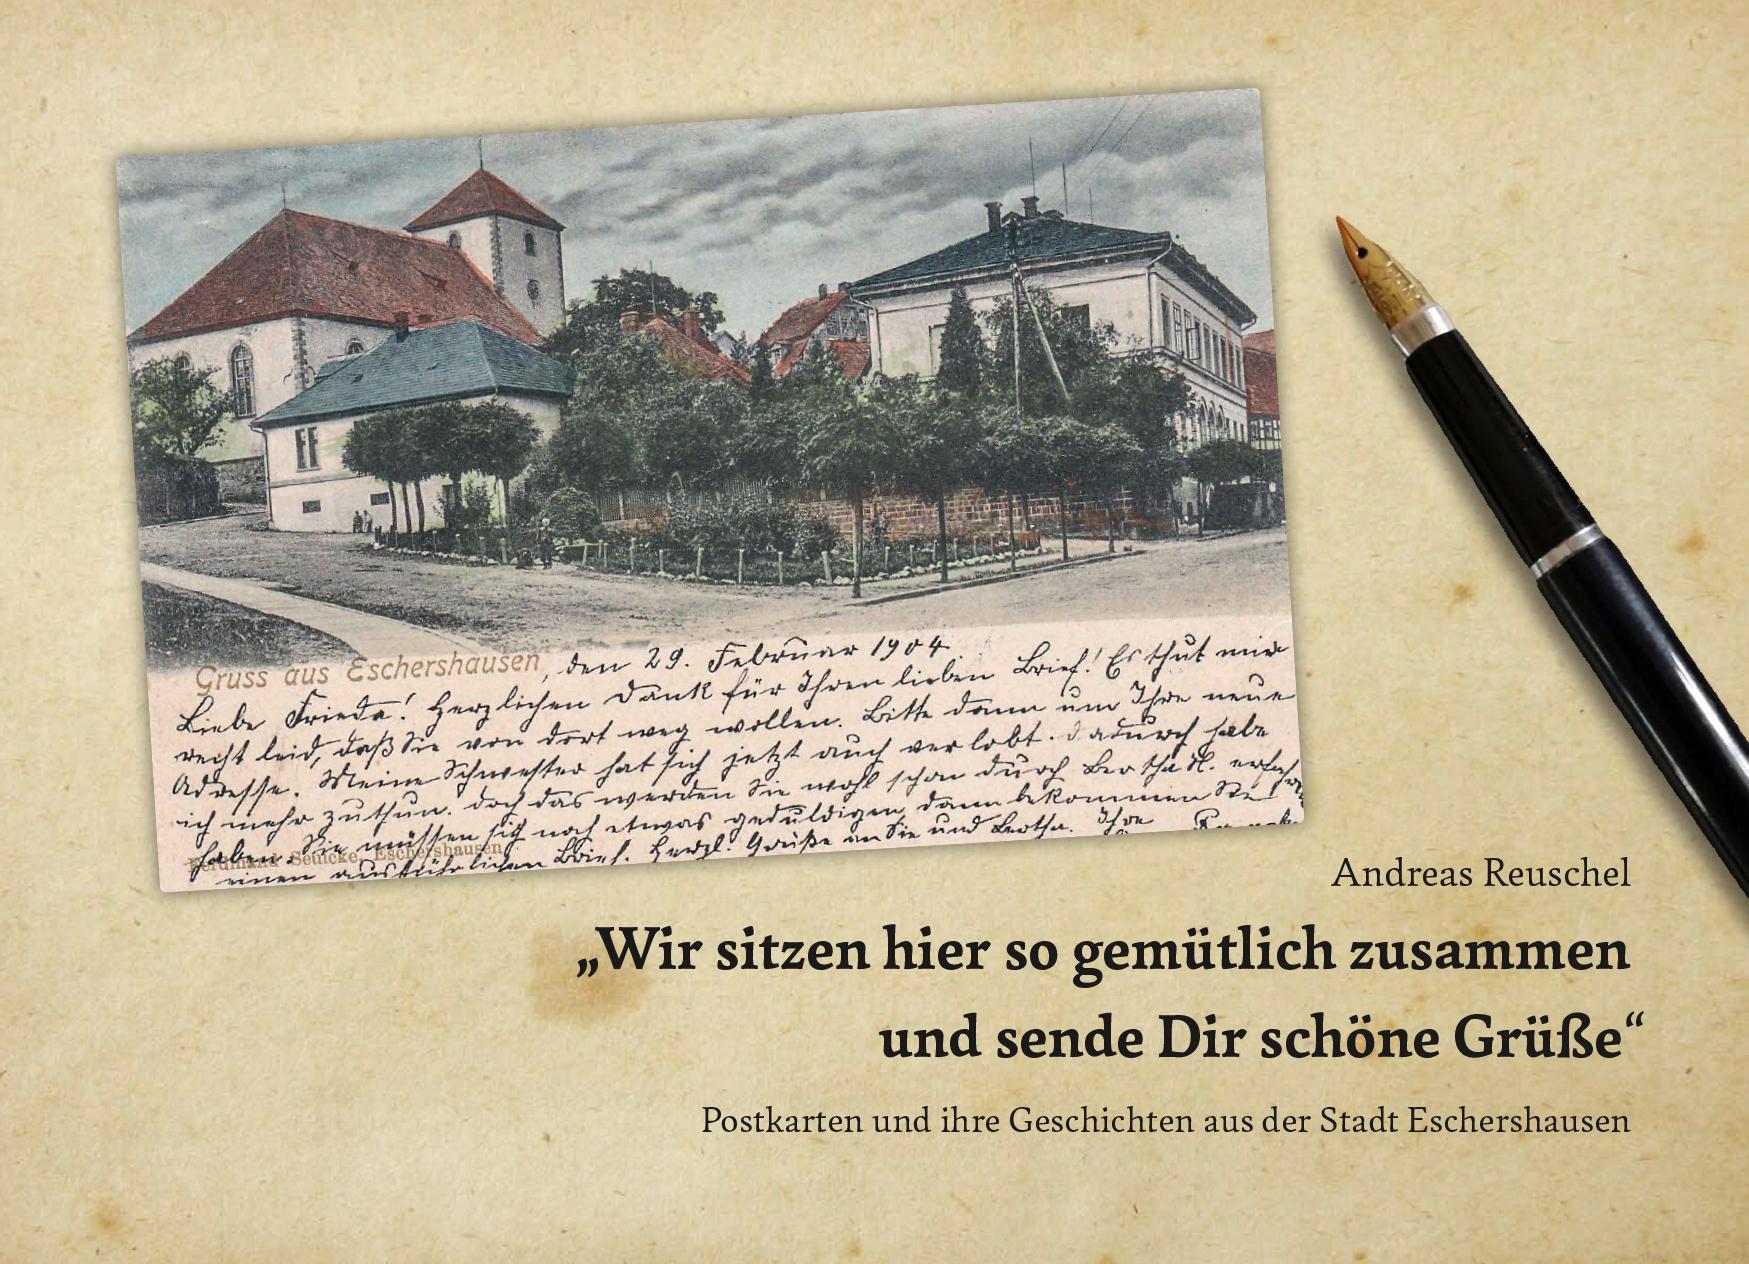 Gruss aus Eschershausen, den 29. Februar 1904.
Liebe Frieda! Herzlichen Dank für Ihren lieben Brief! Es thut mir
recht leid, daß Sie von dort weg wollen. Bitte dann um Ihre neue
Adresse. Meine Schwester hat sich jetzt auch verlobt. dadurch habe
ich mehr zuthun. doch das werden Sie wohl schon durch Bertha erfahren
haben. Sie müssen sich noch etwas geduldigen, dann bekommen Sie
einen ausführlichen Brief. Herzl. Grüße an Sie und Bertha. Ihre
Ferdinand Seulcke, Eschershausen
Andreas Reuschel
„Wir sitzen hier so gemütlich zusammen
und sende Dir schöne Grüße“
Postkarten und ihre Geschichten aus der Stadt Eschershausen